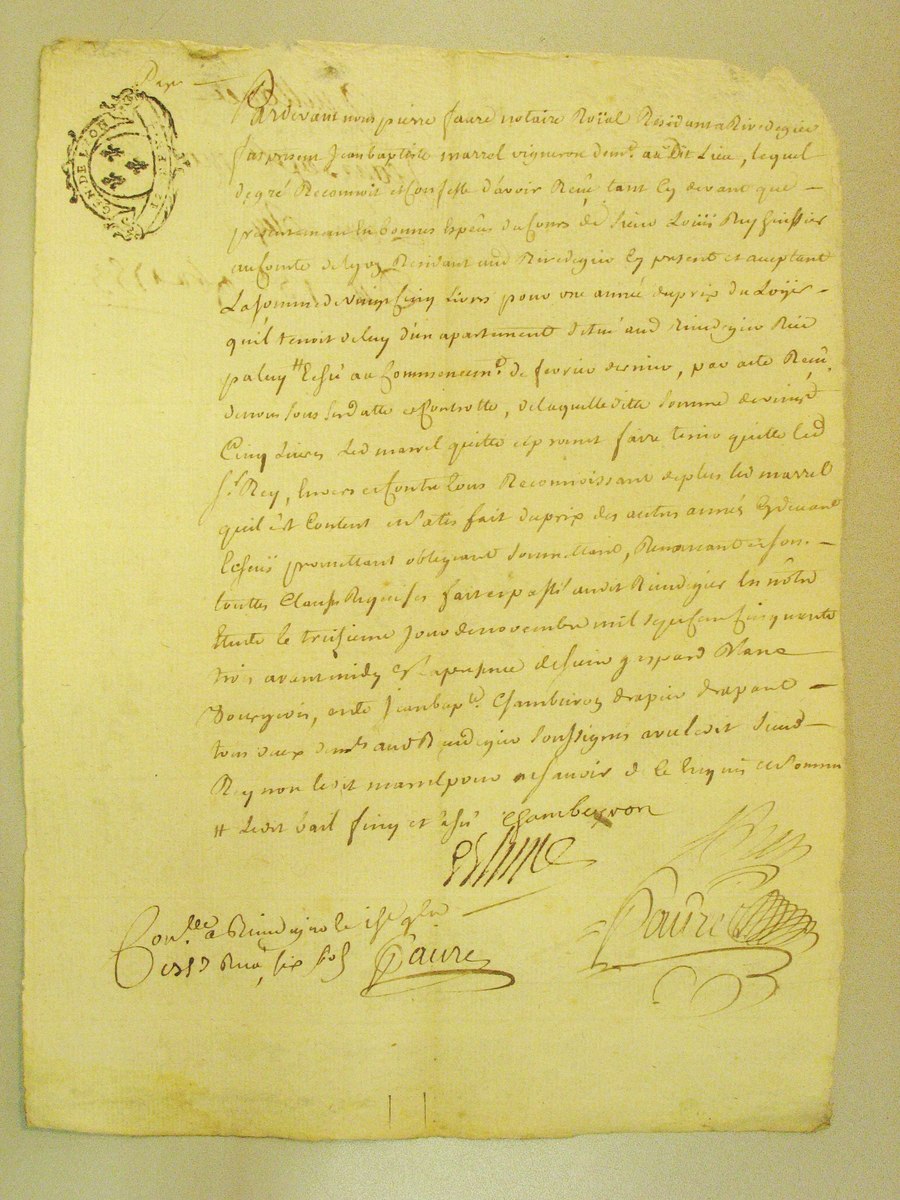 GEN DE LYON
Pardevant nous pierre faure notaire Roÿal Residant a Rivedegier
fut present Jean baptiste marrel vigneron dem.t au dit Lieu, lequel
de gré Reconnoit et Confesse d'avoir Reçu tant Cy devant que
presentement En bonnes Espèces du Cours de Sieur Louïs Rey huissier
au Comté de lyon Residant aud Rivedegier Cy present et acceptant
La somme de vingt Cinq Livres pour une année du prix du Loÿer
qu'il tenoit de luy d'un apartement situé aud Rivedegier
pa luy # Echu au Commencem.t de fevrier dernier, par acte Reçu
de nous sous sa datte et Controlle, de laquelle ditte somme de vingt
Cinq Livres Led marrel quitte et promet faire tenir quitte led
S.r Rey, Envers et Contre tous Reconnoissant de plus led marrel
qu'il est Content et satisfait du prix des autres années Cy devant
Echuës promettant obligeant soumettant, Renonçant et son.
touttes Clauses Requises fait et passé audit Rivedegier En nôtre
Etude le treizieme Jour de novembre mil sept Cent Cinquante
trois avant midy En presence de sieur gaspard Blanc
Bourgeois, et de Jean bap.te Chambeiron drapier drapant
tous deux dem.ts aud Rivedegier soussignés avec ledit sieur
Rey non ledit marrel pour ne savoir de Ce Enquis et Sommé
# Ledit bail finy et echu Chambeyron
Blanc
Rey
Faure
Con.llé a Rivedegier le 9bre
1753 Reçu six sols Faure